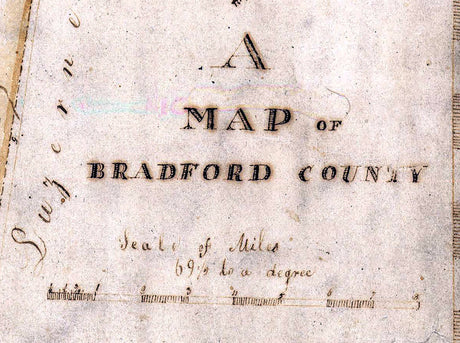 A
MAP OF
BRADFORD COUNTY
Scale of Miles
69½ to a degree
Luzerne